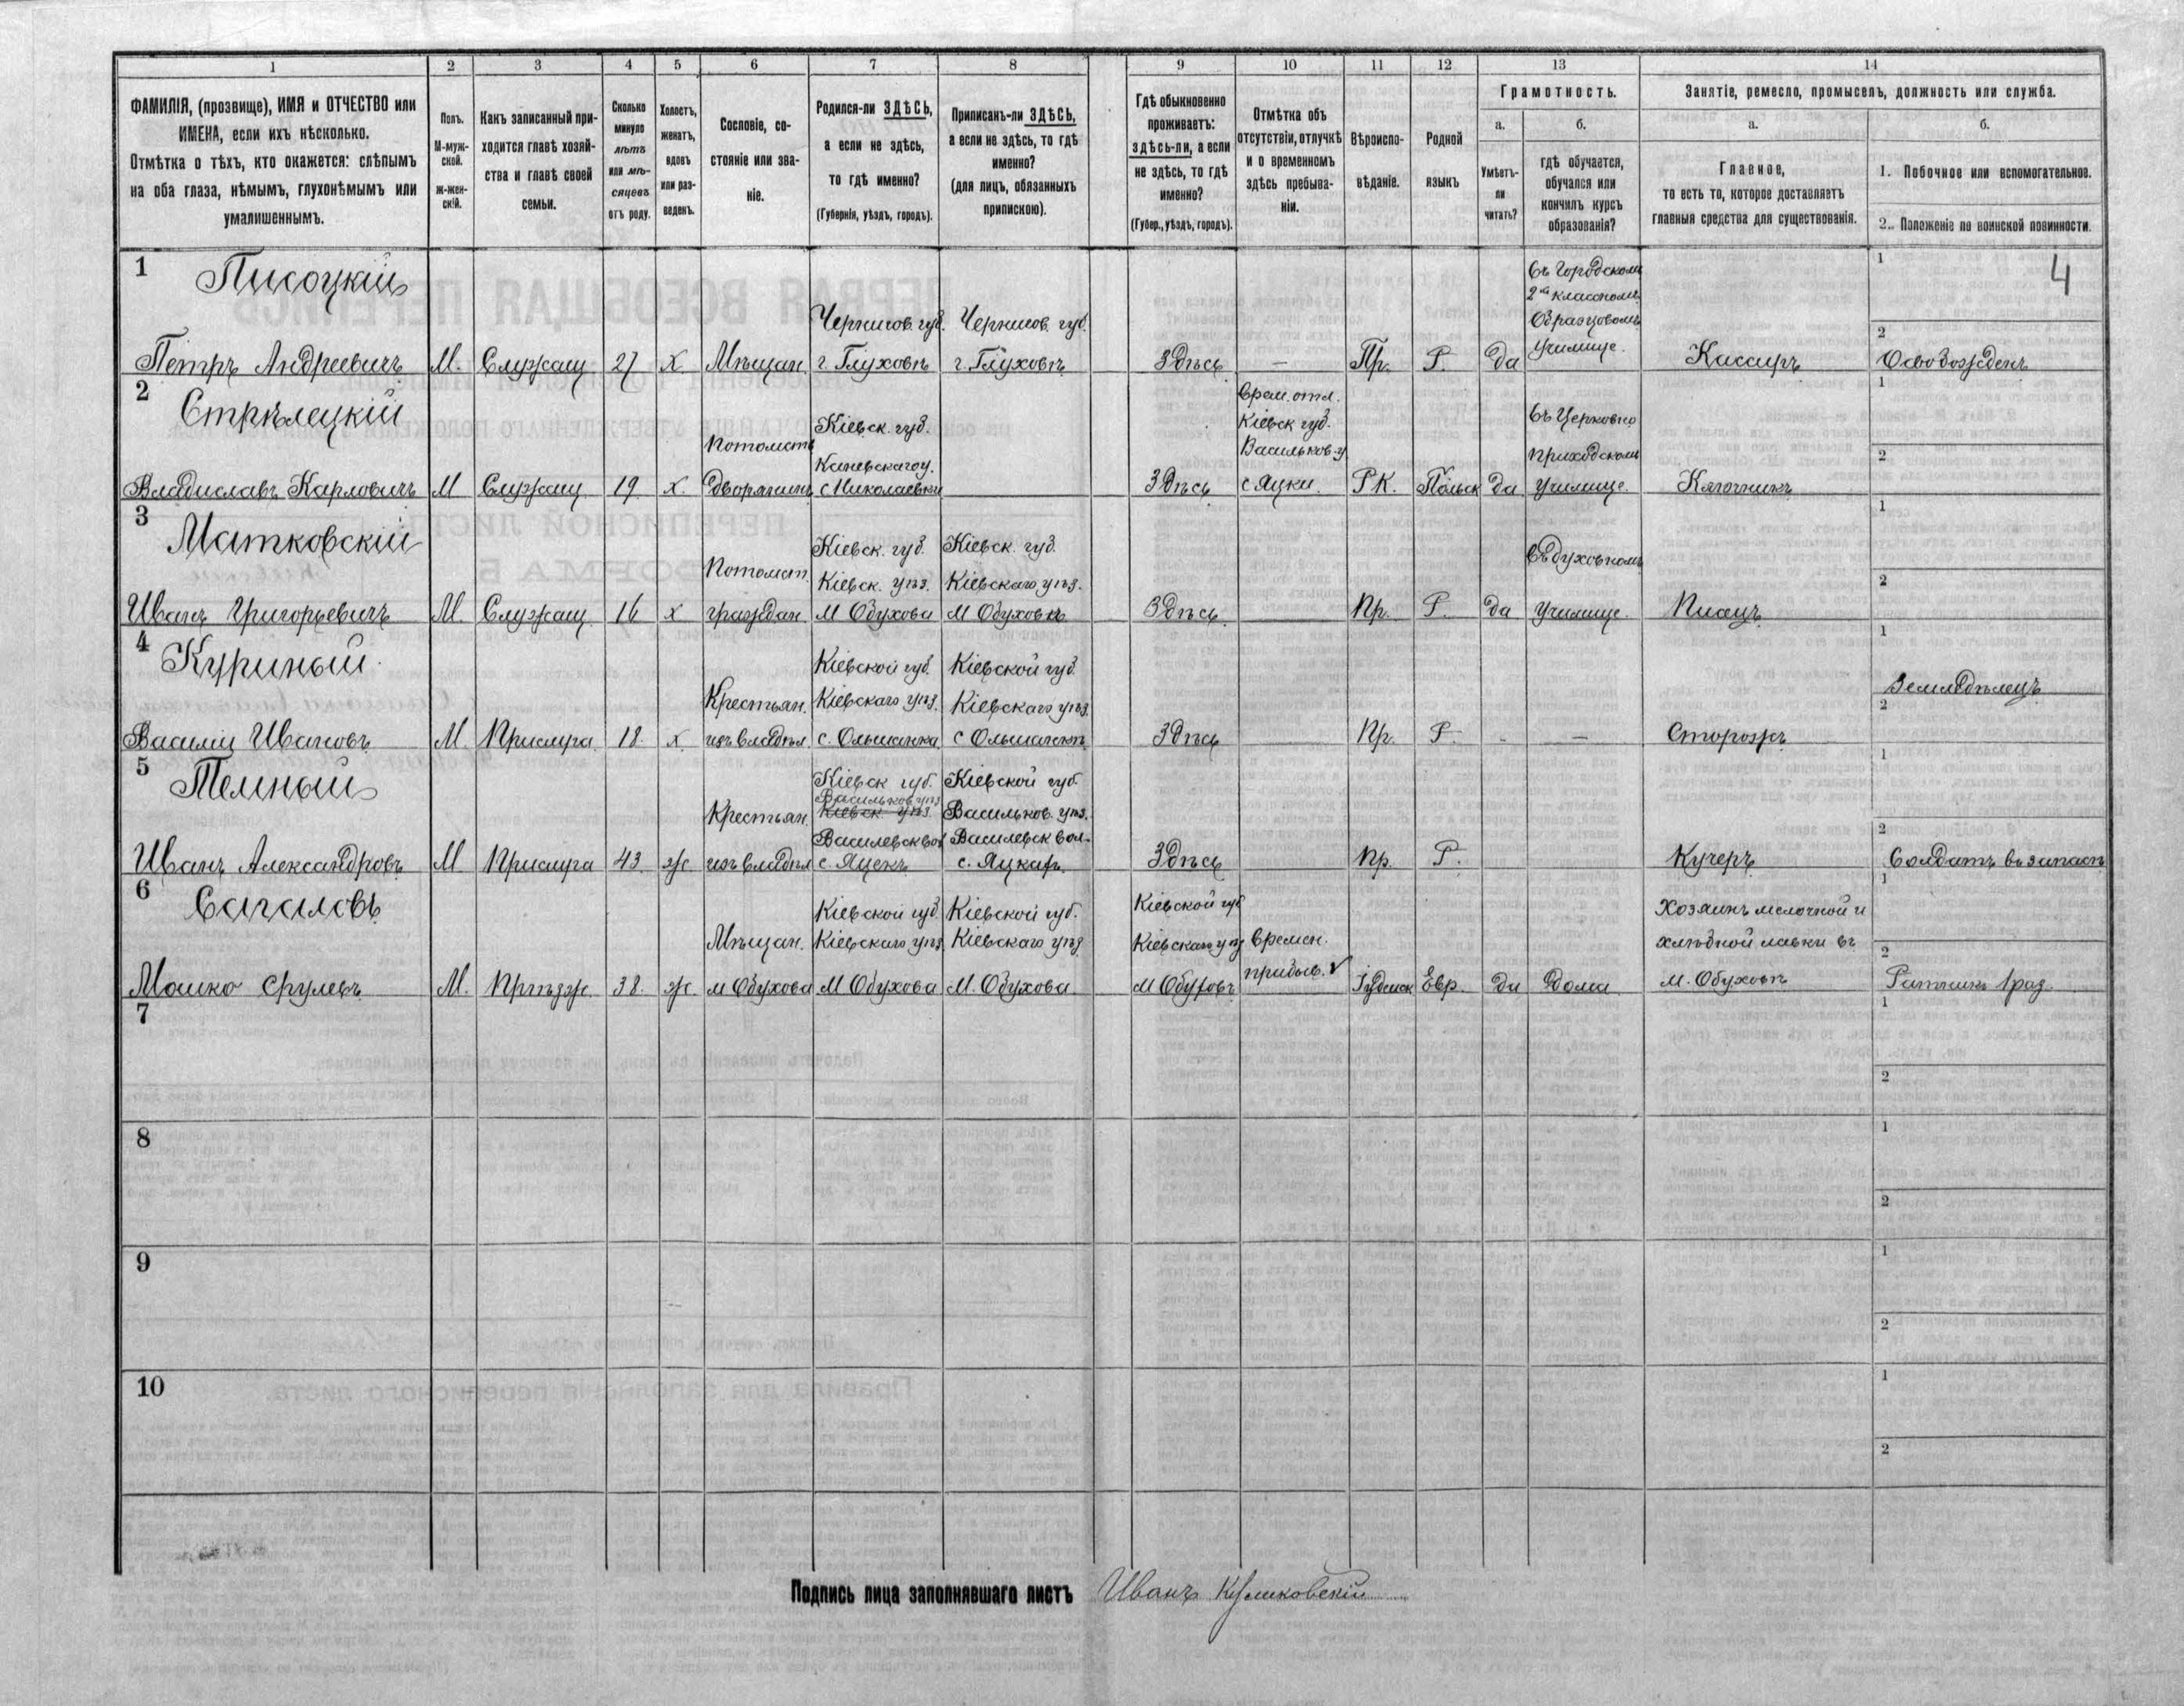 1 2 3 4 5 6 7 8 9 10 11 12 13 14
ФАМИЛІЯ, (прозвище), ИМЯ и ОТЧЕСТВО или
ИМЕНА, если ихъ нѣсколько.
Отмѣтка о тѣхъ, кто окажется: слѣпымъ
на оба глаза, нѣмымъ, глухонѣмымъ или
умалишеннымъ.
Полъ.
М-муж-
ской.
ж-жен-
скій.
Какъ записанный при-
ходится главѣ хозяй-
ства и главѣ своей
семьи.
Сколько
минуло
лѣтъ
или мѣ-
сяцевъ
отъ роду.
Холостъ,
женатъ,
вдовъ
или раз-
веденъ.
Сословіе, со-
стояніе или зва-
ніе.
Родился-ли ЗДѢСЬ,
а если не здѣсь,
то гдѣ именно?
(Губернія, уѣздъ, городъ).
Приписанъ-ли ЗДѢСЬ,
а если не здѣсь, то гдѣ
именно?
(для лицъ, обязанныхъ
припискою).
Гдѣ обыкновенно
проживаетъ:
здѣсь-ли, а если
не здѣсь, то гдѣ
именно?
(Губер., уѣздъ, городъ).
Отмѣтка объ
отсутствіи, отлучкѣ
и о временномъ
здѣсь пребыва-
ніи.
Вѣроиспо-
вѣданіе.
Родной
языкъ
Грамотность.
а.
Умѣетъ-
ли
читать?
б.
гдѣ обучается,
обучался или
кончилъ курсъ
образованія?
Занятіе, ремесло, промыселъ, должность или служба.
а.
Главное,
то есть то, которое доставляетъ
главныя средства для существованія.
б.
1. Побочное или вспомогательное.
2. Положеніе по воинской повинности.
4
1
Писоцкій
Петръ Андреевичъ
М.
Служащ
27
х.
Мѣщан.
Чернигов. губ.
г. Глуховъ
Чернигов. губ.
г. Глуховъ
Здѣсь
—
Пр.
Р.
да
въ Городскомъ
2хъ классномъ
Образцовомъ
Училище.
Кассиръ
1
2
Освобожденъ
2
Стрѣлецкій
Владиславъ Карловичъ
М
Служащ
19.
х.
Потомств
дворянинъ
Кіевск. губ.
Каневскаго у.
с Николаевки
Здѣсь
Врем. отл.
Кіевск губ.
Васильков. у
с Яцки.
Р К.
Польск
да
въ Церковно
приходском
училище.
Ключникъ
1
2
3
Матковскій
Иванъ Григорьевичъ
М.
Служащ
16
х
Потомст.
граждан
Кіевск. губ.
Кіевск. уѣз.
М Обухова
Кіевск. губ.
Кіевскаго уѣз.
М Обуховъ
Здѣсь
Пр.
Р.
да
въ духовномъ
Училище.
Писецъ
1
2
4
Куриный
Василій Ивановъ
М.
Прислуга
18.
х.
Крестьян.
изъ владѣл
Кіевской губ.
Кіевскаго уѣз.
с. Ольшанка
Кіевской губ.
Кіевскаго уѣз.
с Ольшанкѣ
Здѣсь
Пр.
Р.
-
—
Сторожъ
1
Земледѣлецъ
2
5
Темный
Иванъ Александровъ
М
Прислуга
43.
ж
Крестьян.
изъ владѣл
Кіевск губ.
Васильков уѣз
Кіевск. уѣз.
Василевск вол
с. Яцекъ
Кіевской губ.
Васильков. уѣз.
Василевск вол.
с. Яцкахъ
Здѣсь
Пр.
Р.
Кучеръ
1
2
Солдатъ въ запасѣ
6
Сагаловъ
Мошко Срулевъ
М.
Приѣзж.
38.
ж.
Мѣщан.
м Обухова
Кіевской губ
Кіевскаго уѣз
М Обухова
Кіевской губ.
Кіевскаго уѣз
М. Обухова
Кіевской губ
Кіевскаго уѣз
М Обуховъ
времен.
прибыв.
Іудейск
Евр.
да
Дома
Хозяинъ мелочной и
хлѣбной лавки въ
м. Обуховѣ
1
2
Ратникъ 1 раз.
7
1
2
8
1
2
9
1
2
10
1
2
Подпись лица заполнявшаго листъ Иванъ